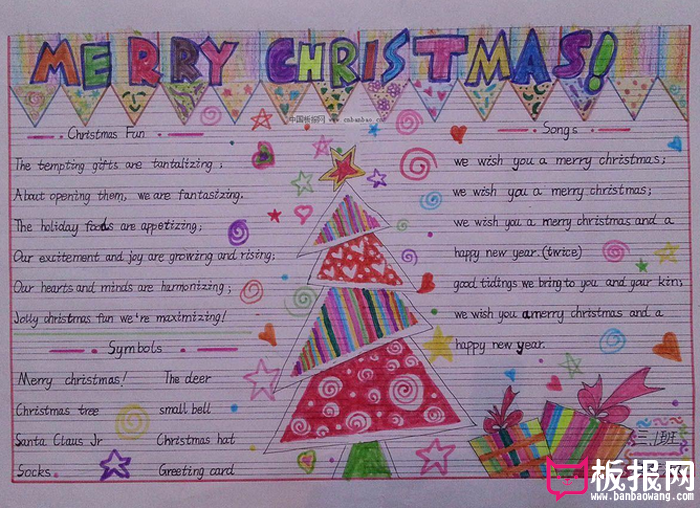 MERRY CHRISTMAS!
中国板报网 www.cnbanbao.cn
Christmas Fun
The tempting gifts are tantalizing;
About opening them, we are fantasizing.
The holiday foods are appetizing;
Our excitement and joy are growing and rising;
Our hearts and minds are harmonizing;
Jolly christmas fun we're maximizing!
Symbols
Merry christmas! The deer
Christmas tree small bell
Santa Claus Jr Christmas hat
Socks Greeting card
Songs
we wish you a merry christmas;
we wish you a merry christmas;
we wish you a merry christmas and a
happy new year.(twice)
good tidings we bring to you and your kin;
we wish you a merry christmas and a
happy new year.
板报网
www.banbaowang.com